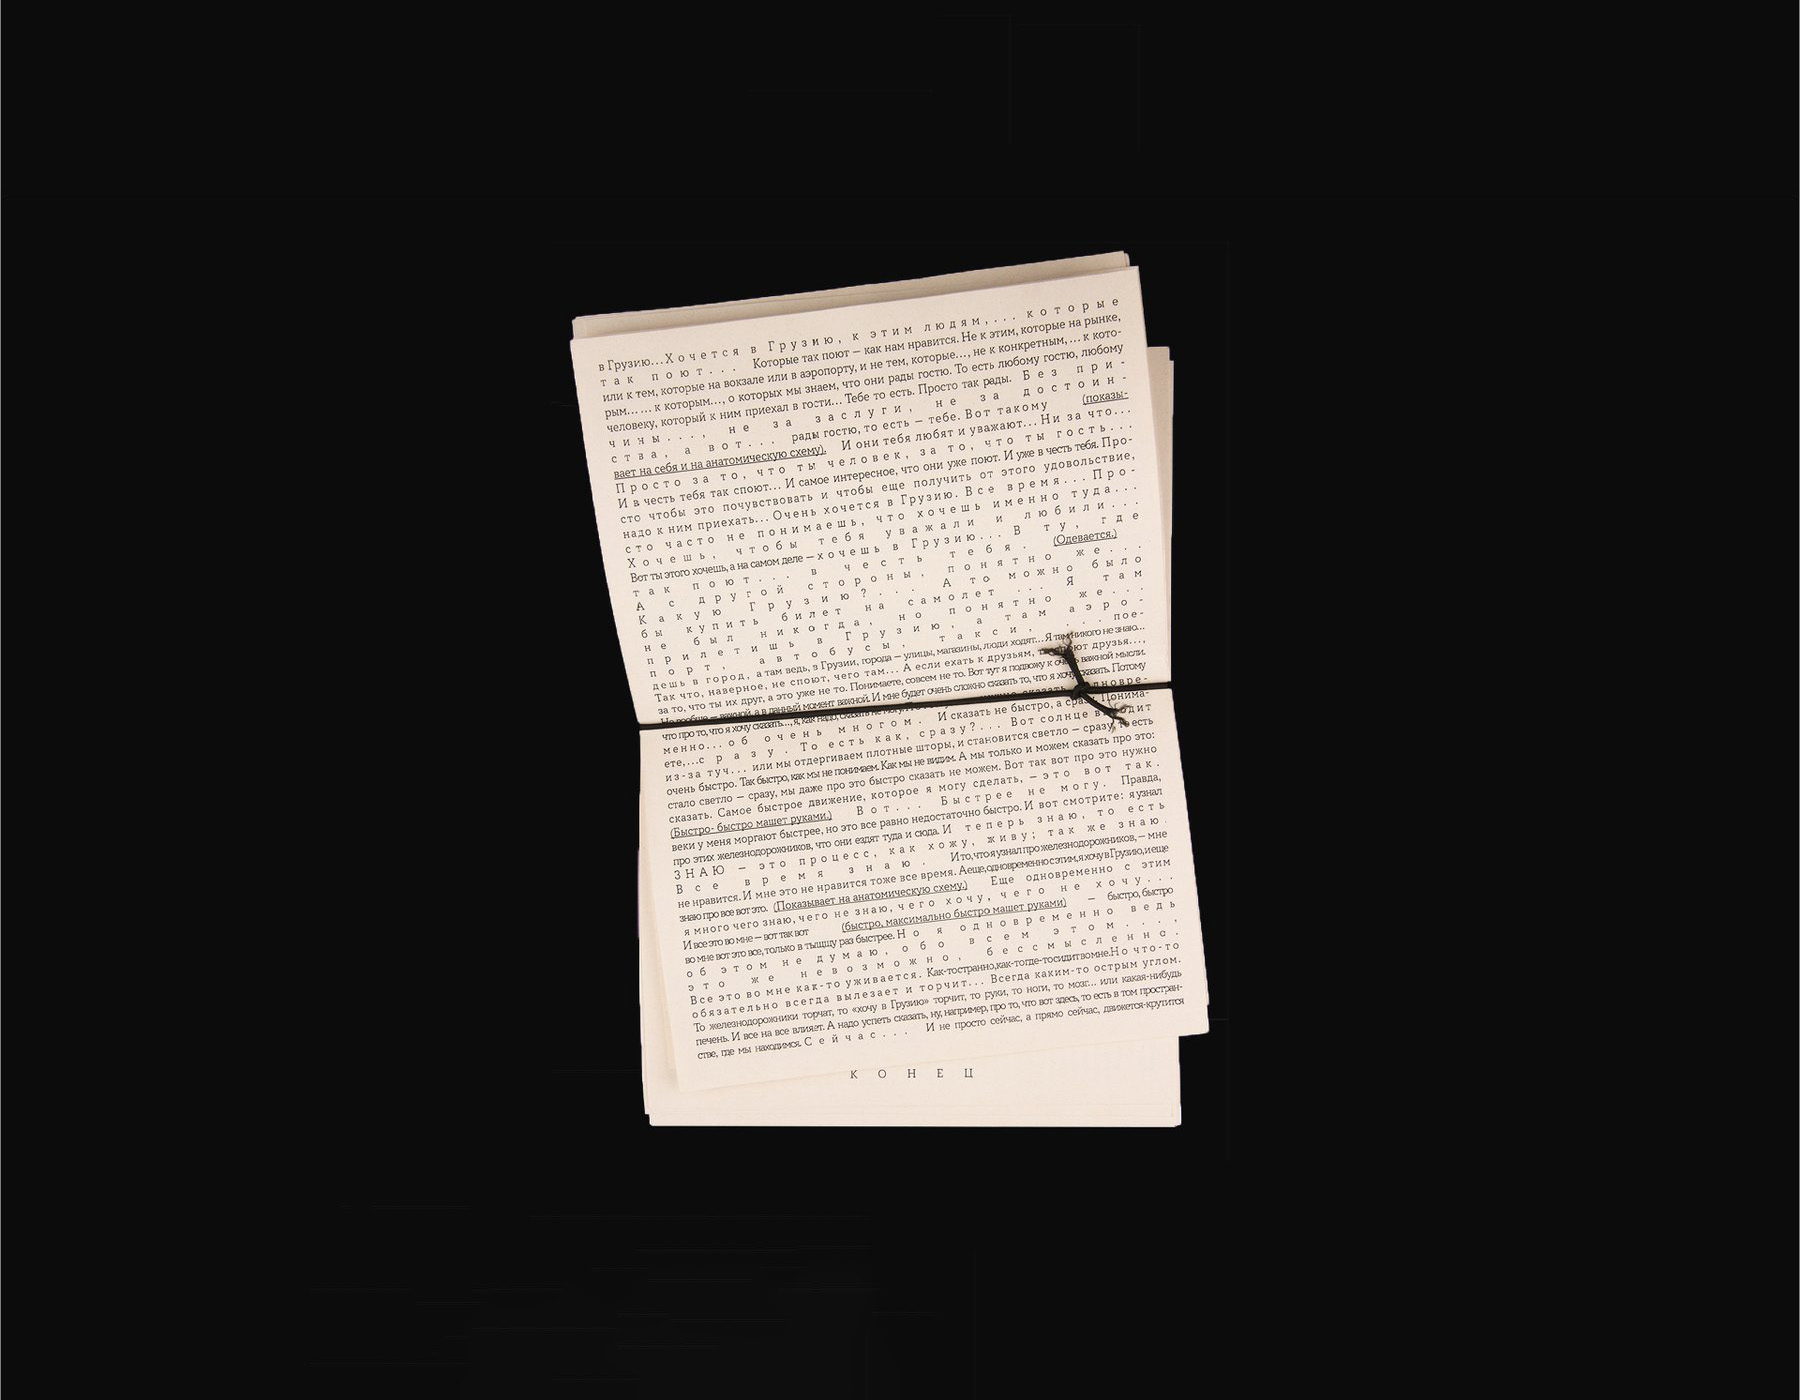 в Грузию...Хочется в Грузию, к этим людям,... которые
так поют... Которые так поют — как нам нравится. Не к этим, которые на рынке,
или к тем, которые на вокзале или в аэропорту, и не тем, которые..., не к конкретным,... к кото-
рым...... к которым..., о которых мы знаем, что они рады гостю. То есть любому гостю, любому
человеку, который к ним приехал в гости... Тебе то есть. Просто так рады. Без при-
чины..., не за заслуги, не за достоин-
ства, а вот... рады гостю, то есть — тебе. Вот такому (показы-
вает на себя и на анатомическую схему). И они тебя любят и уважают... Ни за что...
Просто за то, что ты человек, за то, что ты гость...
И в честь тебя так споют... И самое интересное, что они уже поют. И уже в честь тебя. Про-
сто чтобы это почувствовать и чтобы еще получить от этого удовольствие,
надо к ним приехать... Очень хочется в Грузию. Все время... Про-
сто часто не понимаешь, что хочешь именно туда...
Хочешь, чтобы тебя уважали и любили...
Вот ты этого хочешь, а на самом деле — хочешь в Грузию... В ту, где
так поют... в честь тебя. (Одевается.)
А с другой стороны, понятно же...
Какую Грузию?... А то можно было
бы купить билет на самолет ... Я там
не был никогда, но понятно же...
прилетишь в Грузию, а там аэро-
порт, автобусы, такси, ...пое-
дешь в город, а там ведь, в Грузии, города — улицы, магазины, люди ходят... Я там никого не знаю...
Так что, наверное, не споют, чего там... А если ехать к друзьям, то поют друзья...,
за то, что ты их друг, а это уже не то. Понимаете, совсем не то. Вот тут я подвожу к очень важной мысли.
Не вообще — важной, а в данный момент важной. И мне будет очень сложно сказать то, что я хочу сказать. Потому
что про то, что я хочу сказать..., я, как надо, сказать не могу. сказать одновре-
менно... об очень многом. И сказать не быстро, а сразу. Понима-
ете,...сразу. То есть как, сразу?... Вот солнце выходит
из-за туч... или мы отдергиваем плотные шторы, и становится светло — сразу, то есть
очень быстро. Так быстро, как мы не понимаем. Как мы не видим. А мы только и можем сказать про это:
стало светло — сразу, мы даже про это быстро сказать не можем. Вот так вот про это нужно
сказать. Самое быстрое движение, которое я могу сделать, — это вот так.
(Быстро- быстро машет руками.) Вот... Быстрее не могу. Правда,
веки у меня моргают быстрее, но это все равно недостаточно быстро. И вот смотрите: я узнал
про этих железнодорожников, что они ездят туда и сюда. И теперь знаю, то есть
ЗНАЮ — это процесс, как хожу, живу; так же знаю.
Все время знаю. И то, что я узнал про железнодорожников, — мне
не нравится. И мне это не нравится тоже все время. А еще, одновременно с этим, я хочу в Грузию, и еще
знаю про все вот это. (Показывает на анатомическую схему.) Еще одновременно с этим
я много чего знаю, чего не знаю, чего хочу, чего не хочу...
И все это во мне — вот так вот (быстро, максимально быстро машет руками) — быстро, быстро
во мне вот это все, только в тыщщу раз быстрее. Но я одновременно ведь
об этом не думаю, обо всем этом...,
это же невозможно, бессмысленно.
Все это во мне как-то уживается. Как-то странно, как-то где-то сидит во мне. Но что-то
обязательно всегда вылезает и торчит... Всегда каким-то острым углом.
То железнодорожники торчат, то «хочу в Грузию» торчит, то руки, то ноги, то мозг... или какая-нибудь
печень. И все на все влияет. А надо успеть сказать, ну, например, про то, что вот здесь, то есть в том простран-
стве, где мы находимся. Сейчас... И не просто сейчас, а прямо сейчас, движется-крутится
КОНЕЦ